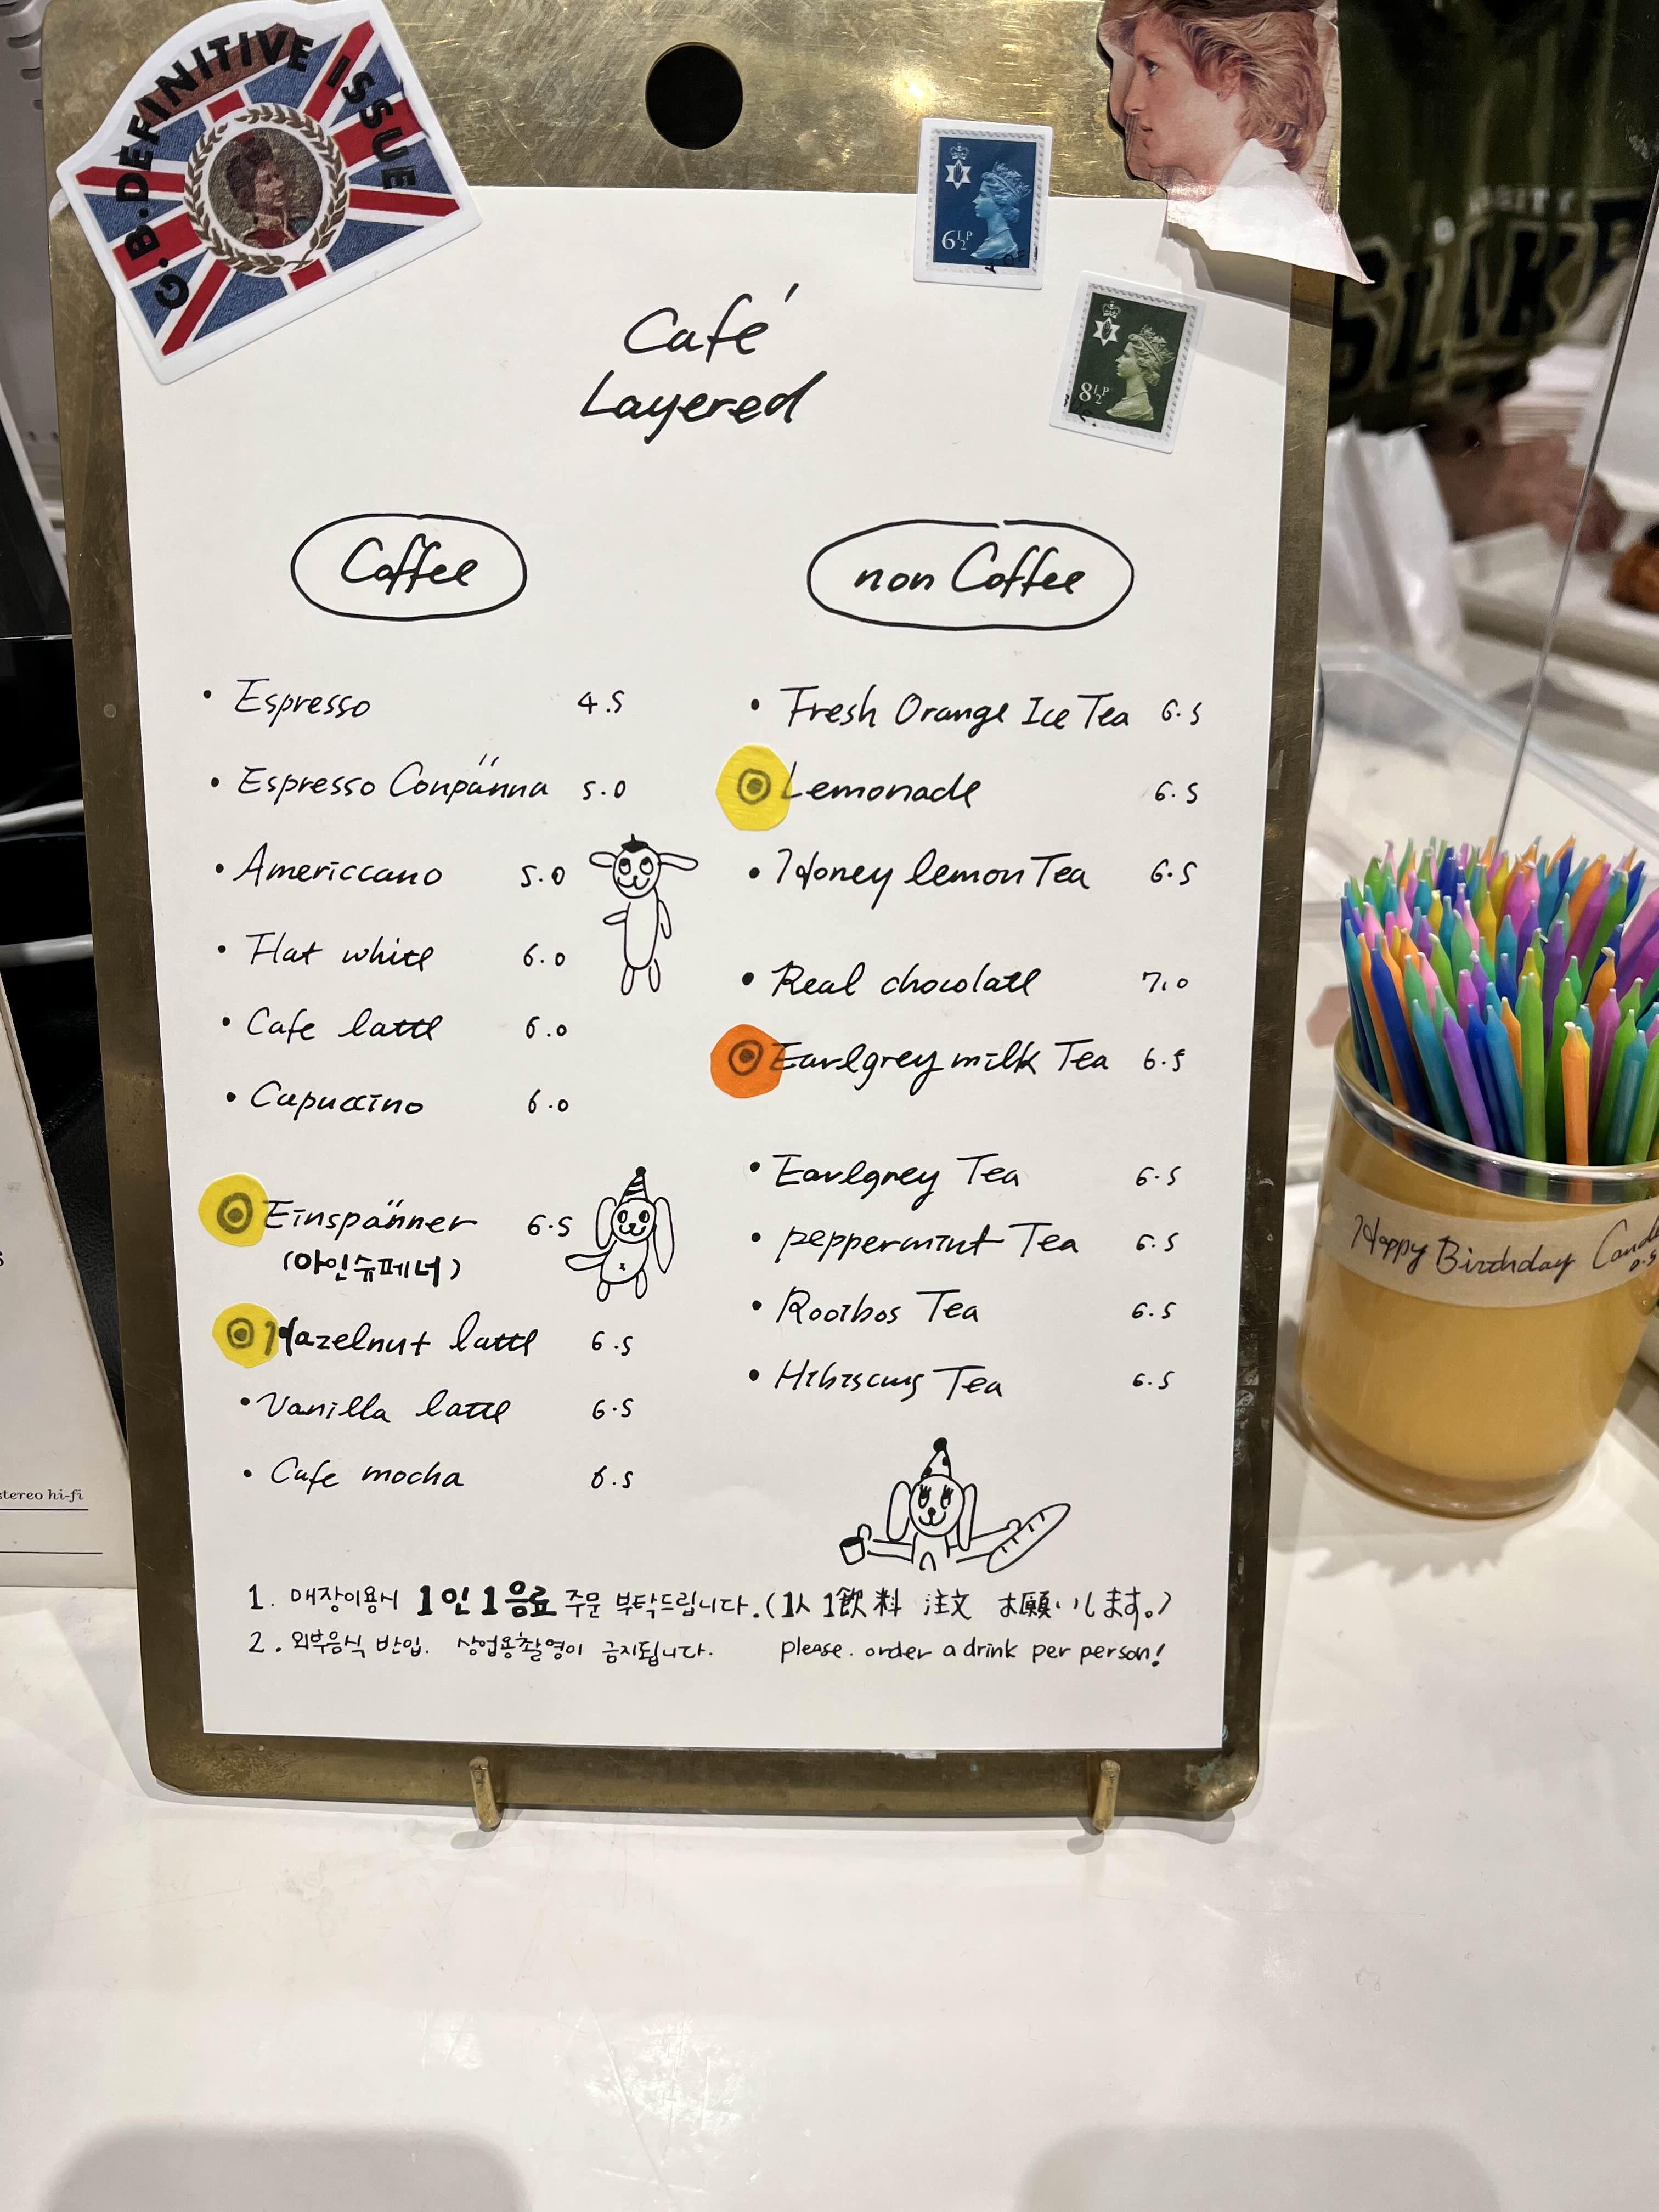 G.B.DEFINITIVE ISSUE
6½P
8½P
Café
Layered
Coffee
• Espresso 4.5
• Espresso Conpänna 5.0
• Americcano 5.0
• Flat white 6.0
• Cafe latte 6.0
• Capuccino 6.0
Einspänner 6.5
(아인슈페너)
Hazelnut latte 6.5
• Vanilla latte 6.5
• Cafe mocha 6.5
non Coffee
• Fresh Orange Ice Tea 6.5
Lemonade 6.5
• Honey lemon Tea 6.5
• Real chocolate 7.0
Earlgrey milk Tea 6.5
• Earlgrey Tea 6.5
• peppermint Tea 6.5
• Rooibos Tea 6.5
• Hibiscus Tea 6.5
1. 매장이용시 1인 1음료 주문 부탁드립니다. (1人 1飲料 注文 お願いします。)
2. 외부음식 반입. 상업용촬영이 금지됩니다. please. order a drink per person!
Happy Birthday
stereo hi-fi